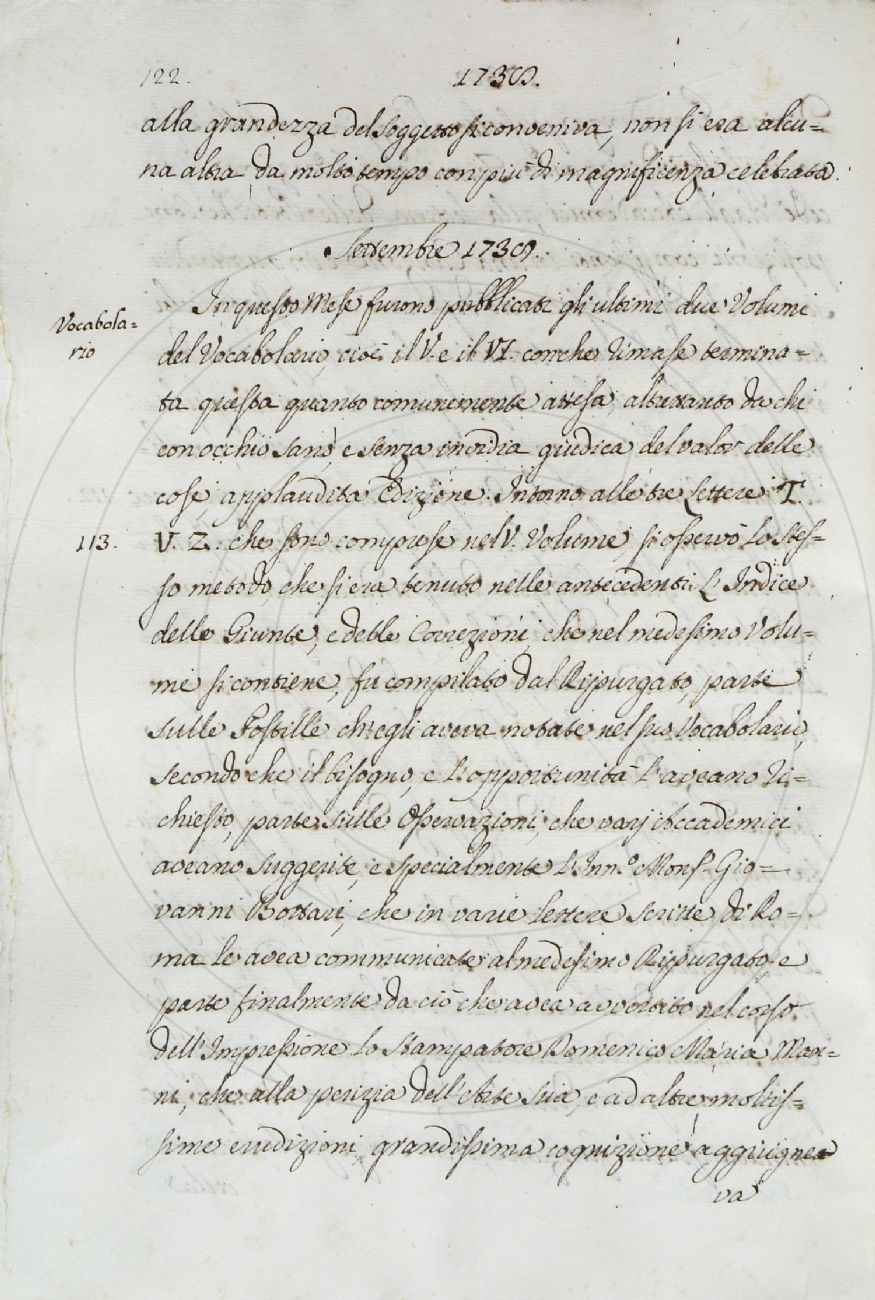 122.
1738.
alla grandezza del soggetto si conveniva, non si era alcu=
na altra da molto tempo con più di magnificenza celebrata.
Settembre 1738.
In questo Mese furono pubblicati gli ultimi due Volumi
Vocabola=
rio
del Vocabolario, cioè il V. e il VI. con che rimase termina=
ta questa quanto comunemente attesa, altrettanto da chi
con occhio sano, e senza invidia giudica del valor delle
cose, applaudita Edizione. Intorno alle tre Lettere T.
113.
V. Z. che sono comprese nel V. Volume, si osservò lo stes=
so metodo, che si era tenuto nelle antecedenti. L'Indice
delle Giunte, e delle Correzioni, che nel medesimo Volu=
me si contiene, fu compilato dal Ripurgato, parte
sulle Postille ch'egli aveva notate nel suo Vocabolario,
secondo che il bisogno, e l'opportunità l'aveano ri=
chiesto, parte sulle Osservazioni, che varj Accademici
aveano suggerite, e specialmente l'Inn.º Mons.r Gio=
vanni Bottari, che in varie lettere scritte di Ro=
ma le avea communicate al medesimo Ripurgato, e
parte finalmente da ciò che avea avvertito nel corso
dell'Impressione lo Stampatore Domenico Maria Man=
ni, che alla perizia dell'Arte sua, e ad altre moltis=
sime erudizioni, grandissima cognizione aggiugnea
va